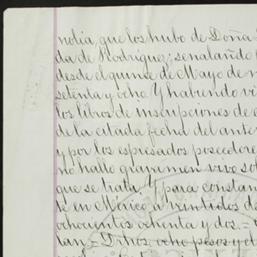 nolia, que los hubo de Doña
da de Rodriguez; señalando
desde quince de Mayo de
setenta y ocho Y habiendo vi
los libros de inscripciones de
de la citada fecha del ante
y por los espresados poseedore
no hallo gravamen vivo so
que se trata Y para constan
te en México a veintidos d
ochocientos ochenta y dos.=
tan = Dthos, ocho pesos y ct